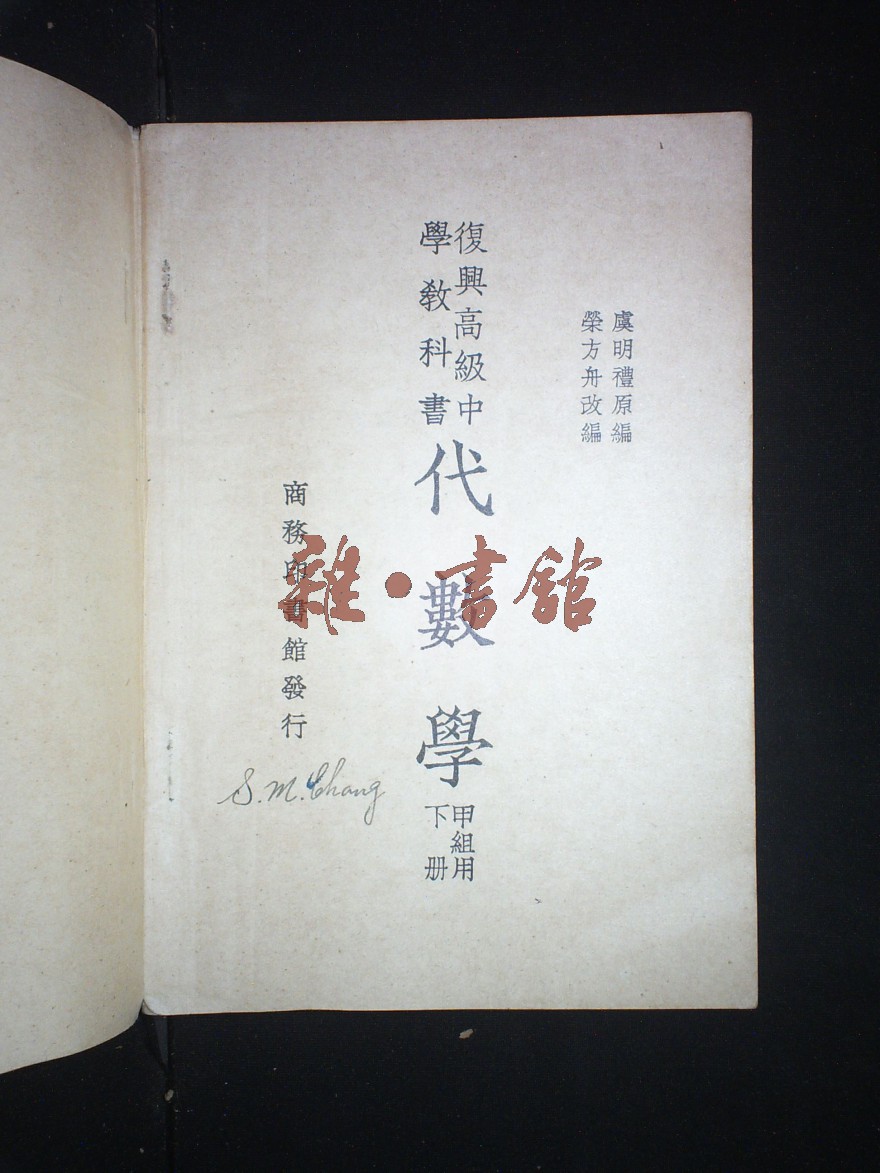 虞明禮原編
榮方舟改編
復興高級中
學教科書
代數學
甲組用
下册
商務印書館發行
S. M. Chang
雜・書館